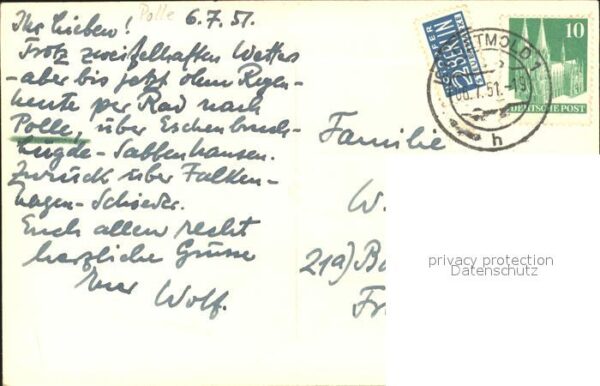 Polle
6.7.51.
Ihr Lieben!
Trotz zweifelhaften Wetters
- aber bis jetzt ohne Regen -
heute per Rad nach
Polle, über Eschenbruch-
hügde - Sabbenhausen.
Zurück über Falken-
hagen - Schieder.
Euch allen recht
herzliche Grüsse
Euer Wolf.
NOTOPFER
2 BERLIN
STEUERMARKE
DETMOLD 1
06.7.51.-19
h
10
DEUTSCHE POST
Familie
W.
21a) Ba
Fr
privacy protection
Datenschutz